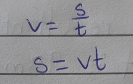 v = s/t
s = vt